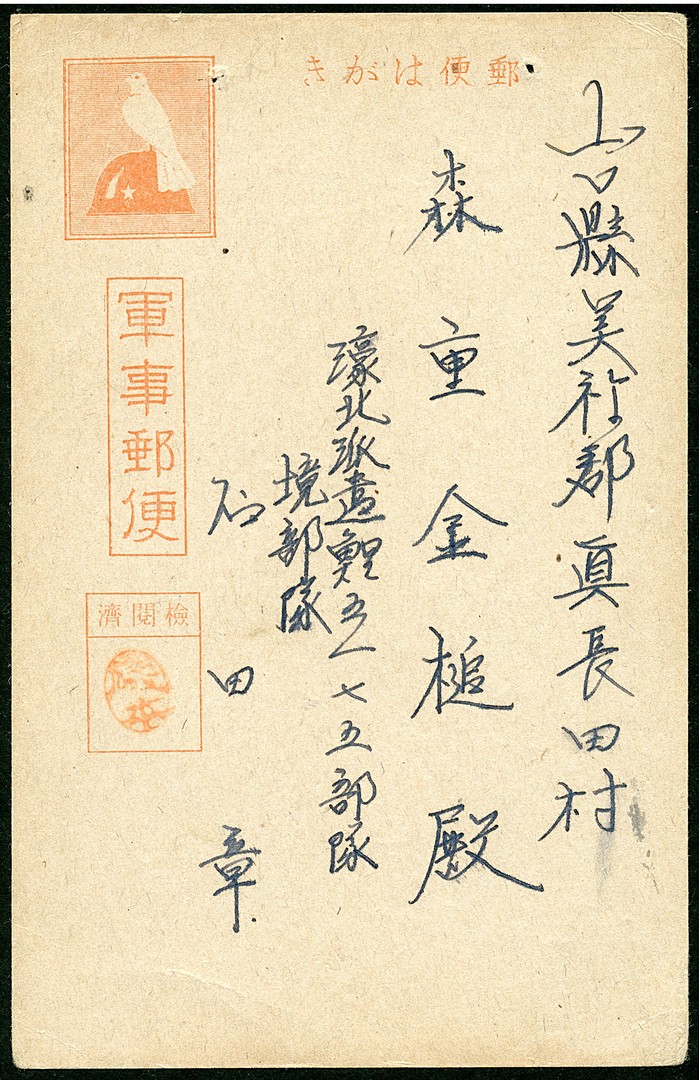 郵便はがき
山口縣美祢郡眞長田村
森重金槌殿
濠北派遣鯉五一七五部隊
境部隊
石田章
軍事郵便
檢閲濟